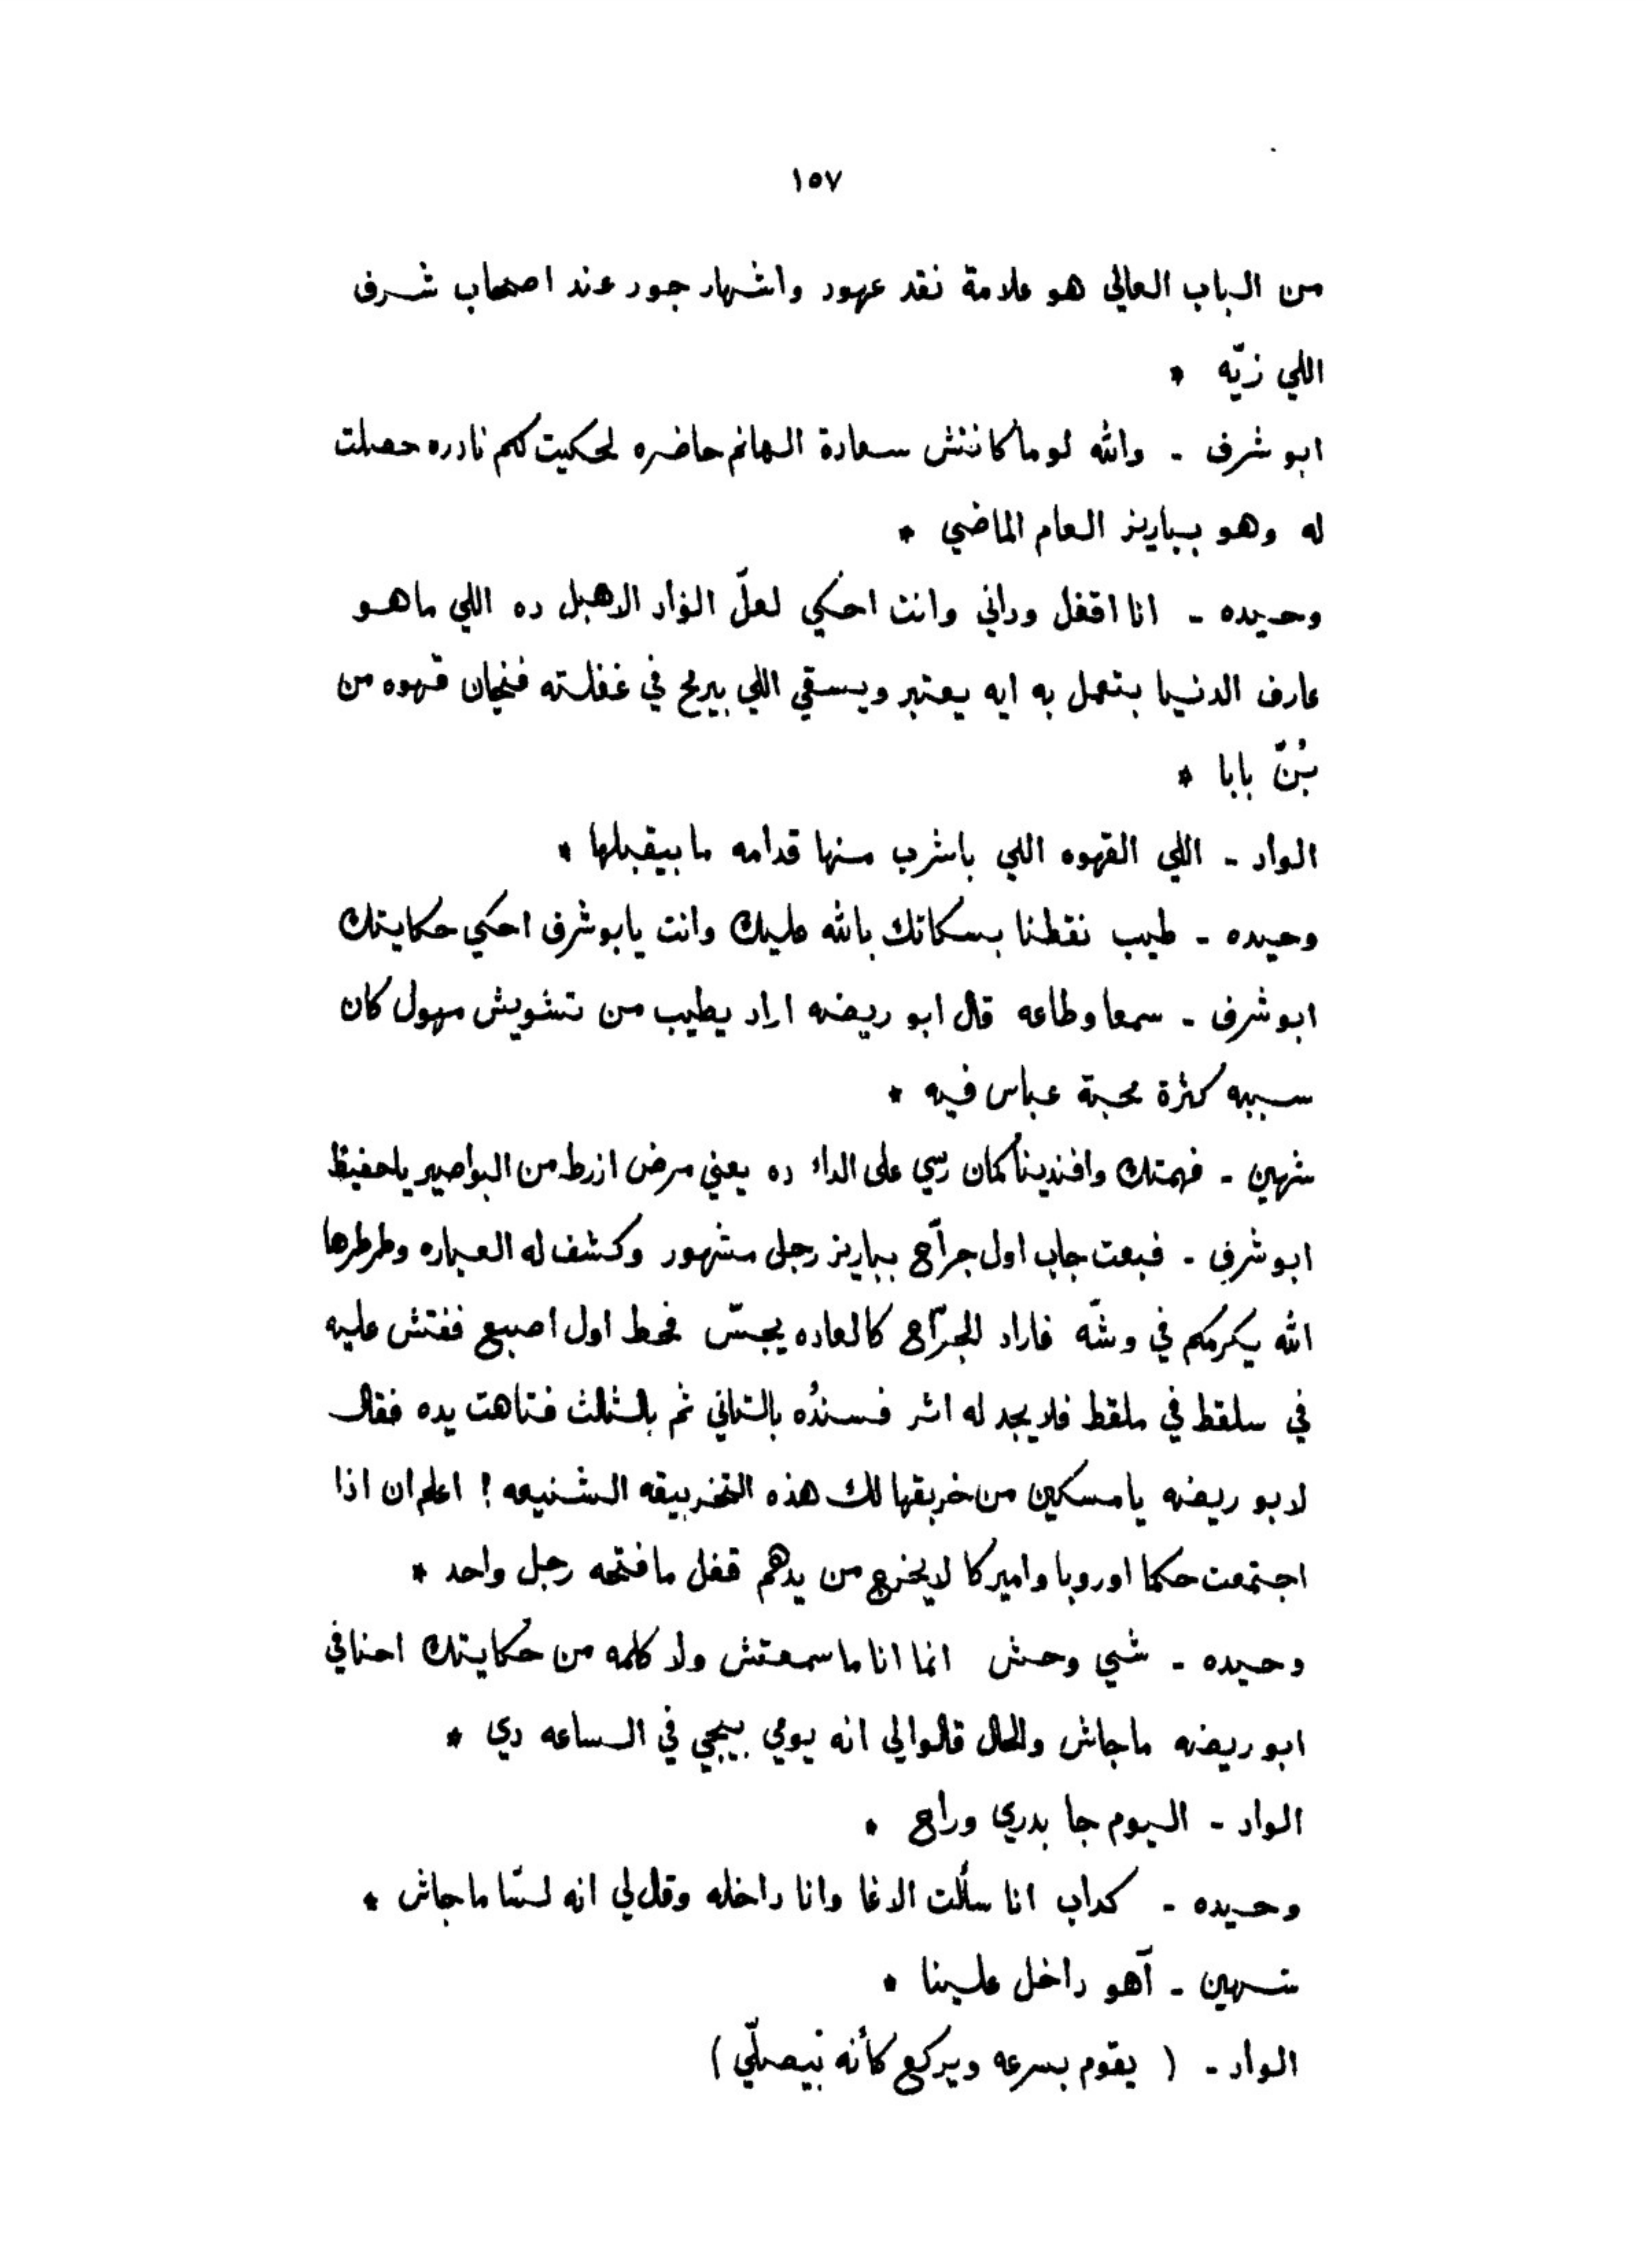 ١٥٧
من الباب العالي هو علامة نقد عهود واشهار جور عند اصحاب شرف
اللي زيّه *
ابو شرف - والله لو ما كانتش سعادة الهانم حاضره لحكيت لكم نادره حصلت
له وهو بباريز العام الماضي *
وحيده - انا اقفل وداني وانت احكي لعلّ الواد الاهبل ده اللي ماهو
عارف الدنيا بتعمل به ايه يعتبر ويسقي اللي بيرمح في غفلته فنجان قهوه من
بُنّ بابا *
الواد - اللي القهوه اللي باشرب منها قدامه ما بيقبلها *
وحيده - طيب نقطنا بسكاتك بالله عليك وانت يابو شرف احكي حكايتك
ابو شرف - سمعا وطاعه قال ابو ريضه اراد يطيب من تشويش مهول كان
سببه كثرة محبة عباس فيه *
شهين - فهمتك وافندينا كمان رسي على الداء ده يعني مرض ازرط من البواصير ياحفيظ
ابو شرف - فبعت جاب اول جرّاح بباريز رجل مشهور وكشف له العباره وطرطرها
الله يكرمكم في وشّه فاراد الجرّاح كالعاده يجسّ فحط اول اصبع ففتش عليه
في سلقط في ملقط فلا يجد له اثر فسندُه بالتاني ثم بالثلث فتاهت يده فقال
لابو ريضه يا مسكين من خربقها لك هذه التخربيقه الشنيعه ! اعلم ان اذا
اجتمعت حكما اوروبا واميركا لا يخرج من يدهم قفل ما فتحه رجل واحد *
وحيده - شي وحش انما انا ما سمعتش ولا كلمه من حكايتك احنا في
ابو ريضه ماجاش والحال قالوا لي انه يومي بيجي في الساعه دي *
الواد - اليوم جا بدري وراح *
وحيده - كداب انا سألت الاغا وانا داخله وقال لي انه لسّا ماجاش *
شهين - آهو داخل علينا *
الواد - ( يقوم بسرعه ويركع كأنه بيصلّي )